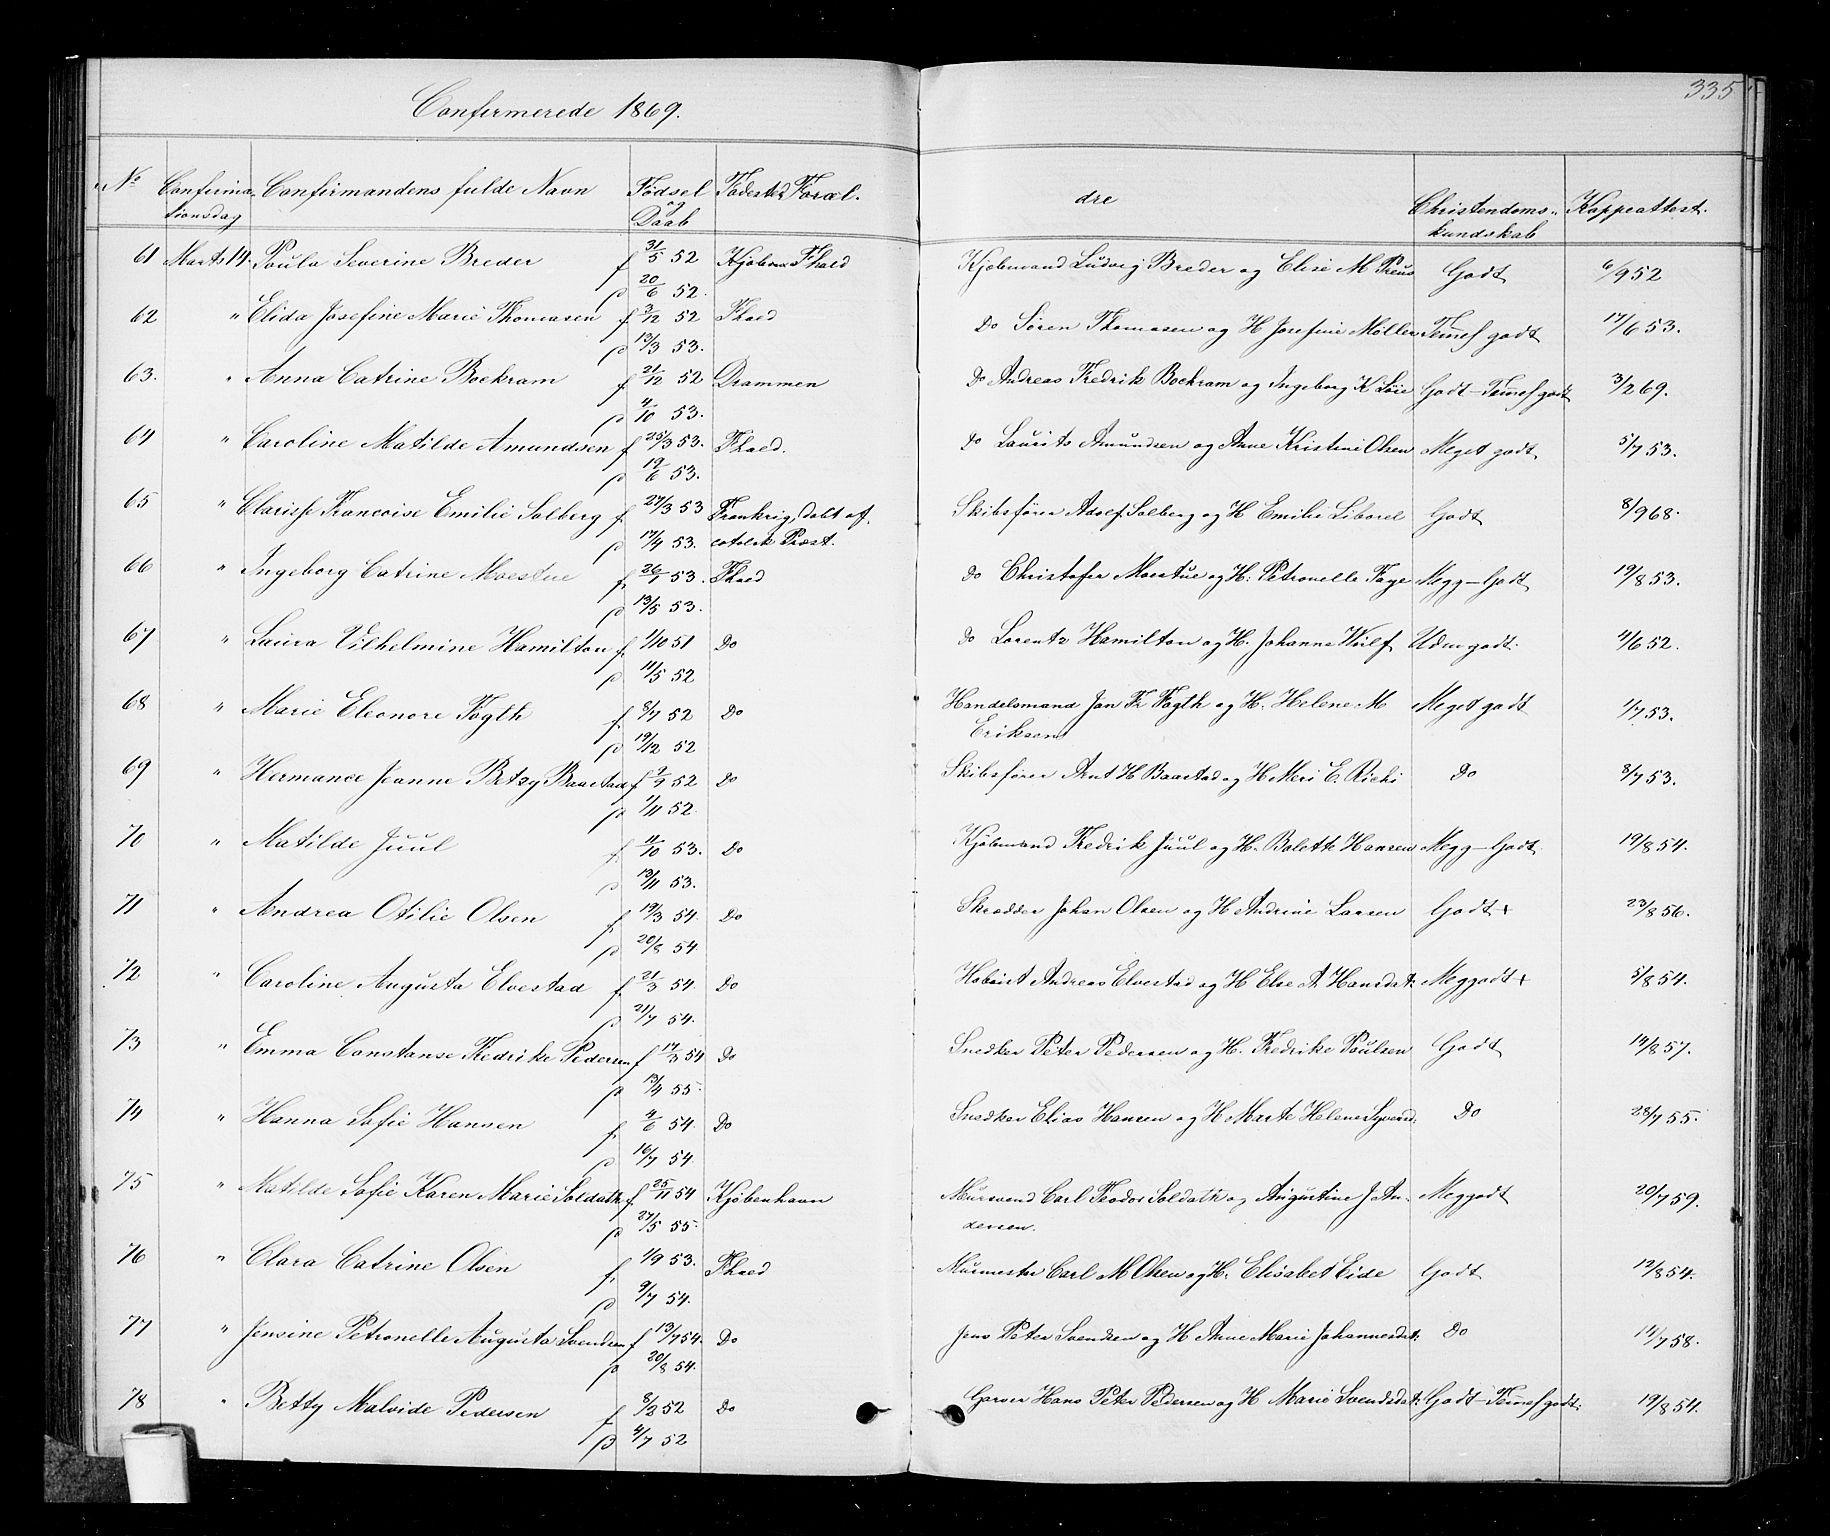 335
Confirmerede 1869.
No Confirma- Confirmandens fulde Navn Fødsel Fødested Foræl- dre Christendoms- Koppeattest.
tionsdag og Daab kundskab
61 Marts 14. Paula Severine Breder f 31/5 52 Fhald Kjøbmand Ludvig Breder og Elise M Preus Godt 6/9 52
p 20/6 52.
62 " Elida Josefine Marie Thomasen f 3/12 52 Fhald Do Søren Thomasen og H Josefine Møller Temel godt 17/6 53.
p 13/3 53.
63. " Anna Catrine Bockram f 21/12 52 Drammen Do Andreas Fredrik Bockram og Ingeborg K Løie Godt - Temel godt 3/2 69.
p 4/10 53.
64 " Caroline Matilde Amundsen f 25/3 53. Fhald. Do Laurits Amundsen og Anne Kristine Olsen Meget godt 5/7 53.
p 19/6 53.
65 " Clarisse Francoise Emilie Solberg f 27/3 53 Frankrig, døbt af Skibsfører Adolf Solberg og H Emilie Liborel Godt 8/9 68.
p 17/4 53. catolsk Præst.
66 " Ingeborg Catrine Moestue f. 26/1 53. Fhald Do Christofer Moestue og H. Petronelle Faye Megg - Godt 19/8 53.
p 13/5 53.
67 " Laura Vilhelmine Hamilton f. 1/10 51 Do Do Lorentz Hamilton og H. Johanne Wulf Udm godt. 4/6 52.
p 11/5 52
68 " Marie Eleonore Fogth f. 8/7 52 Do Handelsmand Jan Fr Fogth og H. Helene M Meget godt 1/7 53.
p 19/12 52 Eriksen
69 " Hermance Jeanne Betzy Baastad f 7/9 52 Do Skibsfører Arnt H Baastad og H Meri E. Richi Do 8/7 53.
p 1/11 52.
70 " Matilde Juul f. 11/10 53. Do Kjøbmand Fredrik Juul og H. Bolette Hansen Megg - Godt. 19/8 54.
p 13/11 53.
71 " Andrea Otilie Olsen f. 19/3 54. Do Skrædder Johan Olsen og H Andrine Larsen Godt + 23/8 56.
p 20/8 54.
72 " Caroline Augusta Elvestad f. 21/3 54. Do Andreas Elvestad og H Else A. Hansdat: Meg godt + 5/8 54.
p 21/7 54.
73 " Emma Constanse Fredrike Pedersen f 17/3 54 Do Snedker Peter Pedersen og H. Fredrike Paulsen Godt 14/8 57.
p 13/4 55.
74 " Hanna Sofie Hansen f. 4/6 54. Do Snedker Elias Hansen og H Marte Helene Syvers: Do 28/7 55.
p 16/7 54.
75 " Matilde Sofie Karen Marie Soldath f. 25/11 54 Kjøbenhavn Mursvend Carl Teodor Soldath og Augustine J An- Meg godt 20/7 59.
p 27/5 55. dersen.
76 " Clara Catrine Olsen f. 1/9 53. Fhald Murmester Carl M Olsen og H. Elisabet Eide Godt 12/8 54.
p 9/7 54.
77 " Jensine Petronelle Augusta Svendsen f 13/7 54. Do Jens Peter Svendsen og H Anne Marie Johannesdt: Do 14/7 58.
p 20/8 54.
78 " Betty Malvide Pedersen f 8/2 52 Do Garver Hans Peter Pedersen og H Marie Svendsdat: Godt - Temel godt. 19/8 54.
p 4/7 52